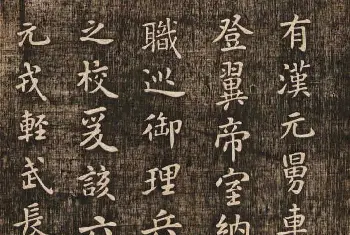 有漢元舅車
登翼帝室納
職巡御理兵
之校爰該六
元戎輕武長